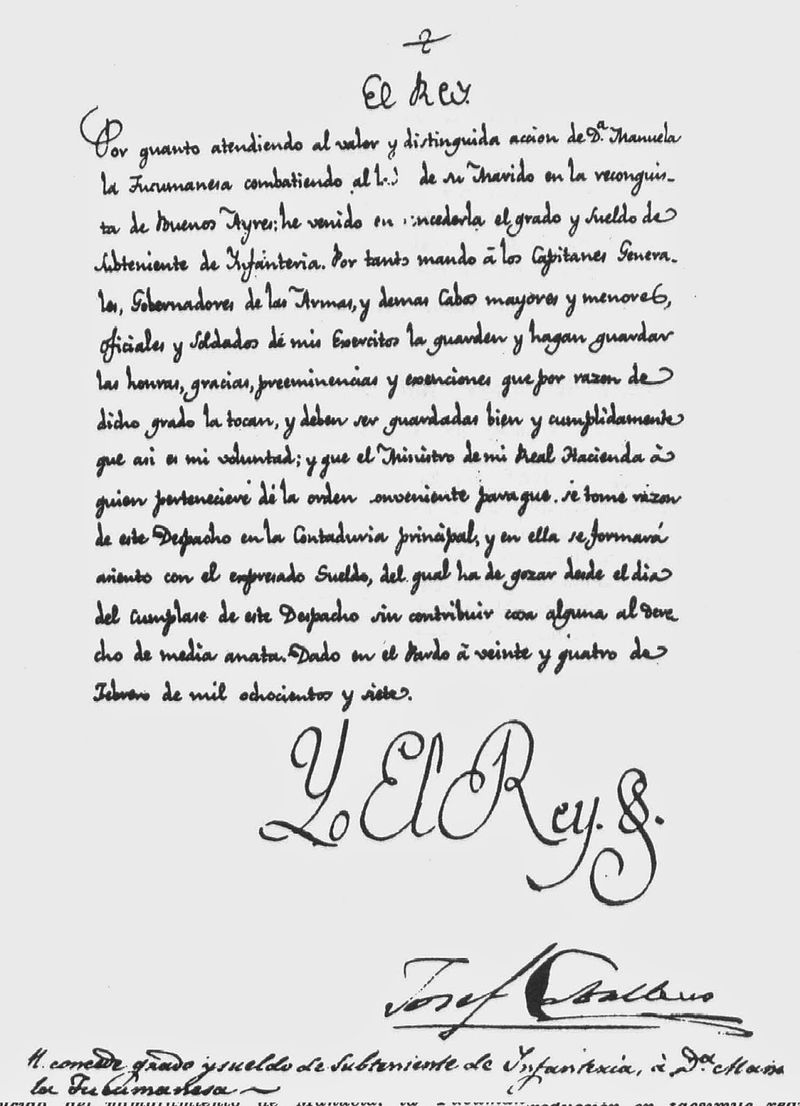 El Rey.
Por quanto atendiendo al valor y distinguida accion de D.ª Manuela
la Tucumanesa combatiendo al de su Marido en la reconquis-
ta de Buenos Ayres; he venido en ncederla el grado y sueldo de
Subteniente de Infanteria. Por tanto mando à los Capitanes Genera-
les, Gobernadores de las Armas, y demas Cabos mayores y menores,
oficiales y Soldados de mis Exercitos la guarden y hagan guardar
las honras, gracias, preeminencias y exenciones que por razon de
dicho grado la tocan, y deben ser guardadas bien y cumplidamente
que asi es mi voluntad; y que el Ministro de mi Real Hacienda à
quien perteneciere dé la orden onveniente para que se tome razon
de este Despacho en la Contaduria principal, y en ella se formará
asiento con el expresado Sueldo, del qual ha de gozar desde el dia
del Cumplase de este Despacho sin contribuir cosa alguna al dere
cho de media anata. Dado en el Pardo à veinte y quatro de
Febrero de mil ochocientos y siete.
Yo El Rey.
Josef Caballero
concede grado y sueldo de Subteniente de Infanteria, à D.ª Man
la Tucumanesa